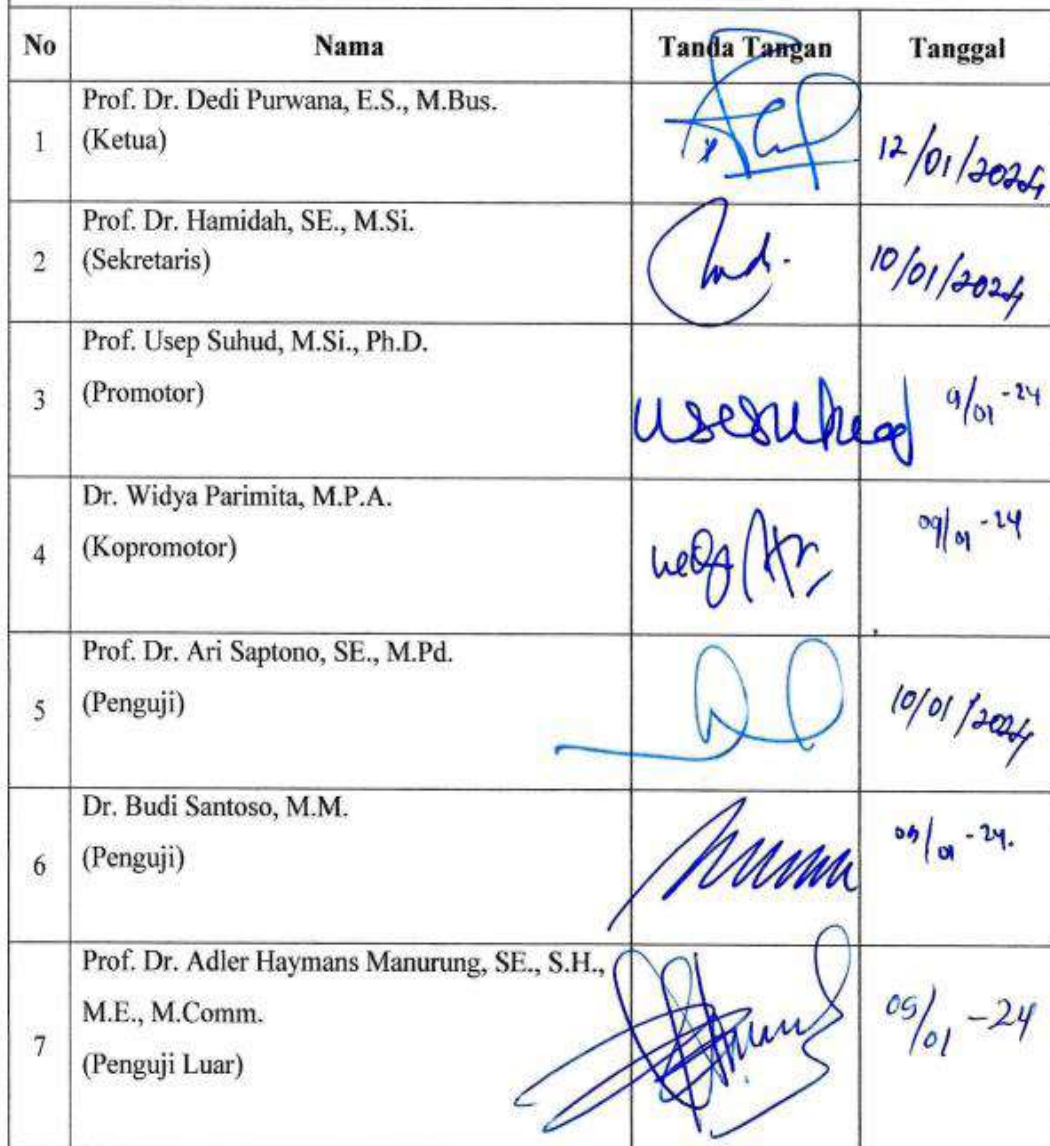 No Nama Tanda Tangan Tanggal
Prof. Dr. Dedi Purwana, E.S., M.Bus.
1 (Ketua) 12/01/2024
Prof. Dr. Hamidah, SE., M.Si.
2 (Sekretaris) 10/01/2024
Prof. Usep Suhud, M.Si., Ph.D.
3 (Promotor) usesuhud 9/01-24
Dr. Widya Parimita, M.P.A.
4 (Kopromotor) 09/01-24
Prof. Dr. Ari Saptono, SE., M.Pd.
5 (Penguji) 10/01/2024
Dr. Budi Santoso, M.M.
6 (Penguji)
Prof. Dr. Adler Haymans Manurung, SE., S.H.,
M.E., M.Comm.
7 (Penguji Luar)